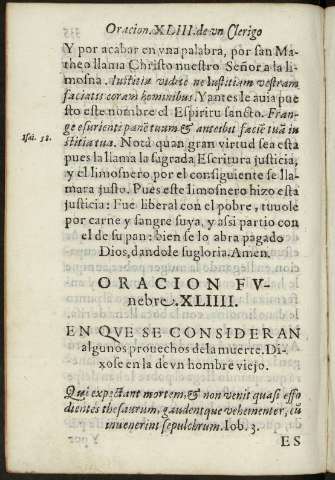 Oracion.XLIII.de vn Clerigo
Y por acabar en vna palabra, por san Ma-
theo llama Christo nuestro Señor a la li-
mosna. Iustitia videte ne Iustitiam vestram
faciatis coram hominibus. Y antes le auia pue
sto este nombre el Espiritu sancto. Fran-
ge esurienti panē tuum & anteibit faciē tuā in
Isai. 58.
stitia tua. Notá quan gran virtud sea esta
pues la llama la sagrada Escritura justicia,
y el limosnero por el consiguiente se lla-
mara justo. Pues este limosnero hizo esta
justicia: Fue liberal con el pobre, tuuole
por carne y sangre suya, y assi partio con
el de su pan: bien se lo abra pagado
Dios, dandole su gloria. Amen.
ORACION FV-
nebre.XLIIII.
EN QVE SE CONSIDERAN
algunos prouechos de la muerte. Di-
xose en la de vn hombre viejo.
Qui expectant mortem, & non venit quasi effo
dientes thesaurum, gaudentque vehementer, cū
inuenerint sepulchrum. Iob. 3.
ES